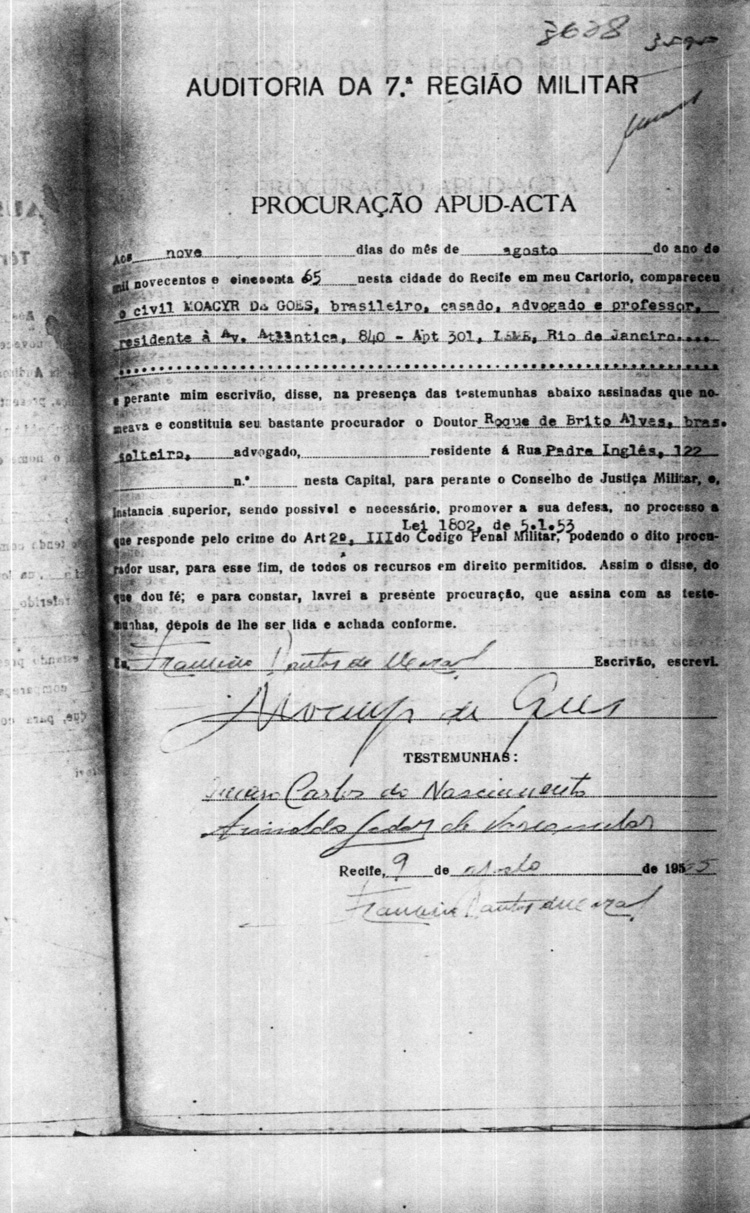 3628
AUDITORIA DA 7.ª REGIÃO MILITAR
PROCURAÇÃO APUD-ACTA
Aos nove dias do mês de agosto do ano de
mil novecentos e cincoenta 65 nesta cidade do Recife em meu Cartorio, compareceu
o civil MOACYR DE GOES, brasileiro, casado, advogado e professor,
residente à Av. Atlântica, 840 - Apt 301, LEME, Rio de Janeiro....
e perante mim escrivão, disse, na presença das testemunhas abaixo assinadas que no-
meava e constituia seu bastante procurador o Doutor Roque de Brito Alves, bras.
solteiro, advogado, residente á Rua Padre Inglês, 122
n.º nesta Capital, para perante o Conselho de Justiça Militar, e,
Instancia superior, sendo possivel e necessário, promover a sua defesa, no processo a
Lei 1802, de 5.1.53
que responde pelo crime do Art 2º, III do Codigo Penal Militar, podendo o dito procu-
rador usar, para esse fim, de todos os recursos em direito permitidos. Assim o disse, do
que dou fé; e para constar, lavrei a presente procuração, que assina com as teste-
munhas, depois de lhe ser lida e achada conforme.
Eu, Escrivão, escrevi.
Moacyr de Góes
TESTEMUNHAS:
Carlos do Nascimento
Arnaldo de Vasconcelos
Recife, 9 de agosto de 1965